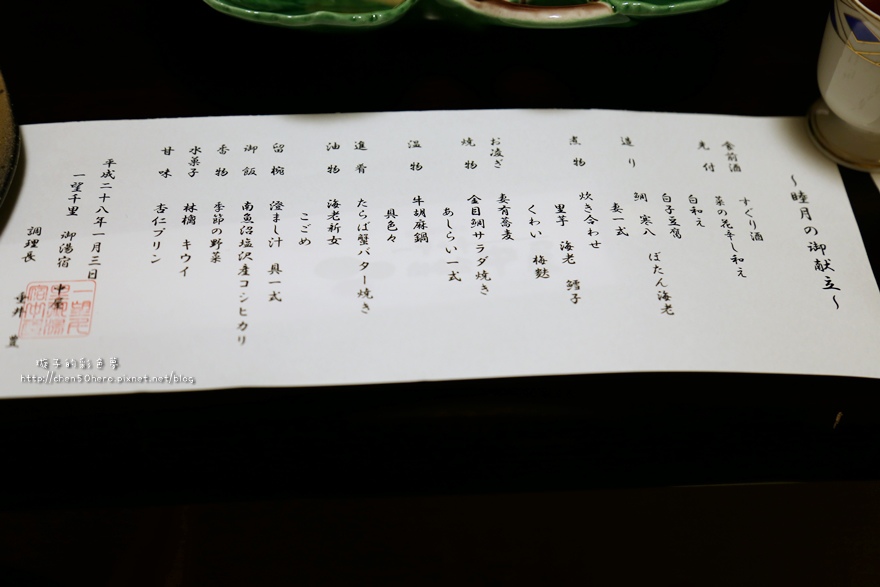 ～睦月の御献立～
食前酒　すぐり酒
先付　菜の花辛し和え
白和え
白子豆腐
造り　鯛　寒八　ぼたん海老
妻一式
煮物　炊き合わせ
里芋　海老　鱈子
くわい　梅麩
お凌ぎ　妻有蕎麦
焼物　金目鯛サラダ焼き
あしらい一式
温物　牛胡麻鍋
具色々
進肴　たらば蟹バター焼き
油物　海老新女
こごめ
留椀　澄まし汁　具一式
御飯　南魚沼塩沢産コシヒカリ
香物　季節の野菜
水菓子　林檎　キウイ
甘味　杏仁プリン
平成二十八年一月三日
一望千里　御湯宿　中屋
調理長　重井　豊
http://chen50hero.pixnet.net/blog